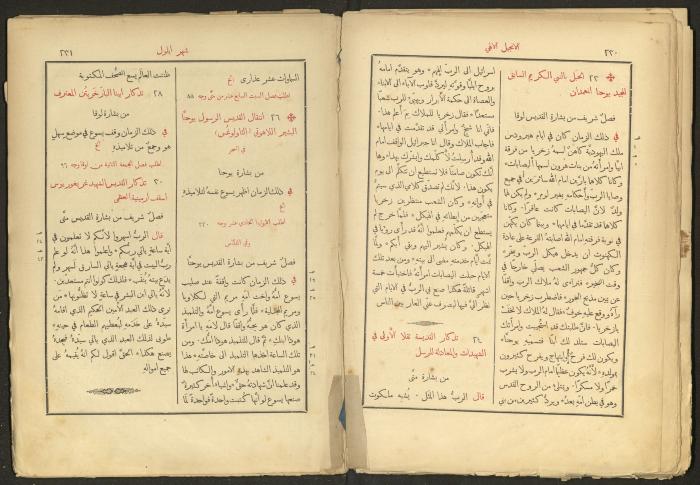 ٢٣٠
الانجيل الالهي
٢٣ الحبل بالنبي الكريم السابق
المجيد يوحنا المعمدان
فصل شريف من بشارة القديس لوقا
في ذلك الزمان كان في ايام هيرودس
ملك اليهودية كاهن اسمه زخريا من فرقة
ابيا وامرأته من بنات هرون اسمها اليصابات
وكانا كلاهما بارين امام الله سائرين في جميع
وصايا الرب واحكامه بغير لوم ولم يكن لهما
ولد لان اليصابات كانت عاقرا وكانا
كلاهما قد تقدما في ايامهما وبينما كان يكهن
في نوبة فرقته امام الله اصابته القرعة على عادة
الكهنوت ان يدخل هيكل الرب ويبخر
وكان كل جمهور الشعب يصلي خارجا في
وقت التبخير فتراءى له ملاك الرب واقفا
عن يمين مذبح البخور فاضطرب زخريا حين
رآه ووقع عليه خوف فقال له الملاك لا تخف
يا زخريا فان طلبتك قد استجيبت وامرأتك
اليصابات ستلد لك ابنا فتسميه يوحنا
ويكون لك فرح وابتهاج ويفرح كثيرون
بمولده لانه يكون عظيما امام الرب ولا يشرب
خمرا ولا مسكرا ويمتلئ من الروح القدس
وهو في بطن امه بعد ويرد كثيرين من بني
اسرائيل الى الرب الههم وهو يتقدم امامه
بروح ايليا وقوته ليرد قلوب الآباء الى الابناء
والعصاة الى حكمة الابرار ويهيئ للرب شعبا
مستعدا فقال زخريا للملاك بم اعلم هذا
فاني انا شيخ وامرأتي قد تقدمت في ايامها
فاجاب الملاك وقال انا جبرائيل الواقف امام
الله وقد أرسلت لأكلمك وابشرك بهذا وها
انك تكون صامتا فلا تستطيع ان تتكلم الى يوم
يكون هذا لانك لم تصدق كلامي الذي سيتم
في أوانه وكان الشعب منتظرين زخريا
متعجبين من ابطائه في الهيكل فلما خرج لم
يستطع ان يكلمهم فعلموا انه قد رأى رؤيا في
الهيكل وكان يشير اليهم وبقي أبكم ولما
تمت أيام خدمته مضى الى بيته ومن بعد تلك
الايام حبلت اليصابات امرأته فاختبأت خمسة
اشهر قائلة هكذا صنع بي الرب في الايام التي
نظر الي فيها ليصرف عني العار بين الناس
٢٤ تذكار القديسة تقلا الأولى في
الشهيدات والمعادلة للرسل
من بشارة متى
قال الرب هذا المثل يشبه ملكوت
شهر ايلول
٢٣١
السماوات عشر عذارى الخ
اطلب فصل السبت السابع عشر من متى وجه ٨٨
٢٦ انتقال القديس الرسول يوحنا
البشير اللاهوتي (الثاولوغس)
في السحر
من بشارة يوحنا
في ذلك الزمان اظهر يسوع نفسه لتلاميذه
الخ
وفي القداس
فصل شريف من بشارة القديس يوحنا
في ذلك الزمان كانت واقفة عند صليب
يسوع امه وأخت امه مريم التي لكلاوبا
ومريم المجدلية فلما رأى يسوع امه والتلميذ
الذي كان هو يحبه واقفا قال لامه يا امرأة
هوذا ابنك ثم قال للتلميذ هوذا امك ومن
تلك الساعة اخذها التلميذ الى خاصته هذا
هو التلميذ الشاهد بهذه الامور والكاتب لها
وقد علمنا ان شهادته حق واشياء أخر كثيرة
صنعها يسوع لو انها كتبت واحدة فواحدة لما
ظننت العالم يسع الصحف المكتوبة
٢٨ تذكار ابينا البار خريتن المعترف
من بشارة لوقا
في ذلك الزمان وقف يسوع في موضع سهل
هو وجمع من تلاميذه الخ
اطلب فصل الجمعة الثانية من لوقا وجه ٩٦
٣٠ تذكار القديس الشهيد غريغوريوس
اسقف ارمينية العظمى
فصل شريف من بشارة القديس متى
قال الرب اسهروا لانكم لا تعلمون في
أية ساعة يأتي ربكم واعلموا هذا انه لو علم
رب البيت في أية هجعة يأتي السارق لسهر ولم
يدع بيته ينقب فلذلك كونوا انتم مستعدين
لانه يأتي ابن البشر في ساعة لا تظنونها من
ترى ذلك العبد الامين الحكيم الذي اقامه
سيده على خدمه ليعطيهم الطعام في حينه
طوبى لذلك العبد الذي يأتي سيده فيجده
يصنع هكذا الحق اقول لكم انه يقيمه على
جميع امواله